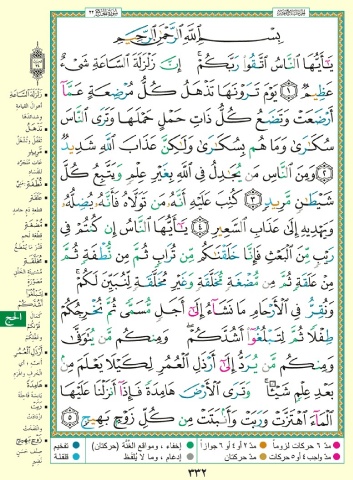 بِسْمِ ٱللَّهِ ٱلرَّحْمَٰنِ ٱلرَّحِيمِ
يَٰٓأَيُّهَا ٱلنَّاسُ ٱتَّقُوا۟ رَبَّكُمْ ۚ إِنَّ زَلْزَلَةَ ٱلسَّاعَةِ شَىْءٌ
عَظِيمٌ ١ يَوْمَ تَرَوْنَهَا تَذْهَلُ كُلُّ مُرْضِعَةٍ عَمَّآ
أَرْضَعَتْ وَتَضَعُ كُلُّ ذَاتِ حَمْلٍ حَمْلَهَا وَتَرَى ٱلنَّاسَ
سُكَٰرَىٰ وَمَا هُم بِسُكَٰرَىٰ وَلَٰكِنَّ عَذَابَ ٱللَّهِ شَدِيدٌ
٢ وَمِنَ ٱلنَّاسِ مَن يُجَٰدِلُ فِى ٱللَّهِ بِغَيْرِ عِلْمٍ وَيَتَّبِعُ كُلَّ
شَيْطَٰنٍ مَّرِيدٍ ٣ كُتِبَ عَلَيْهِ أَنَّهُۥ مَن تَوَلَّاهُ فَأَنَّهُۥ يُضِلُّهُۥ
وَيَهْدِيهِ إِلَىٰ عَذَابِ ٱلسَّعِيرِ ٤ يَٰٓأَيُّهَا ٱلنَّاسُ إِن كُنتُمْ فِى
رَيْبٍ مِّنَ ٱلْبَعْثِ فَإِنَّا خَلَقْنَٰكُم مِّن تُرَابٍ ثُمَّ مِن نُّطْفَةٍ ثُمَّ
مِنْ عَلَقَةٍ ثُمَّ مِن مُّضْغَةٍ مُّخَلَّقَةٍ وَغَيْرِ مُخَلَّقَةٍ لِّنُبَيِّنَ لَكُمْ ۚ
وَنُقِرُّ فِى ٱلْأَرْحَامِ مَا نَشَآءُ إِلَىٰٓ أَجَلٍ مُّسَمًّى ثُمَّ نُخْرِجُكُمْ
طِفْلًا ثُمَّ لِتَبْلُغُوٓا۟ أَشُدَّكُمْ ۖ وَمِنكُم مَّن يُتَوَفَّىٰ
وَمِنكُم مَّن يُرَدُّ إِلَىٰٓ أَرْذَلِ ٱلْعُمُرِ لِكَيْلَا يَعْلَمَ مِنۢ
بَعْدِ عِلْمٍ شَيْـًٔا ۚ وَتَرَى ٱلْأَرْضَ هَامِدَةً فَإِذَآ أَنزَلْنَا عَلَيْهَا
ٱلْمَآءَ ٱهْتَزَّتْ وَرَبَتْ وَأَنۢبَتَتْ مِن كُلِّ زَوْجٍۭ بَهِيجٍ ٥
زَلْزَلَةَ السَّاعَةِ
أهوال القيامة
وشدائدها
تَذْهَلُ
مَرِيدٍ
نُطْفَةٍ
عَلَقَةٍ
مُضْغَةٍ
مُخَلَّقَةٍ
الحج
أَرْذَلِ الْعُمُرِ
هَامِدَةً
رَبَتْ
زَوْجٍ بَهِيجٍ
مدّ ٦ حركات لزوماً
مدّ ٢ أو ٤ أو ٦ جوازاً
إخفاء، ومواقع الغُنَّة (حركتان)
تفخيم
مدّ واجب ٤ أو ٥ حركات
مدّ حركتان
إدغام، وما لا يُلفظ
قلقلة
٣٣٢